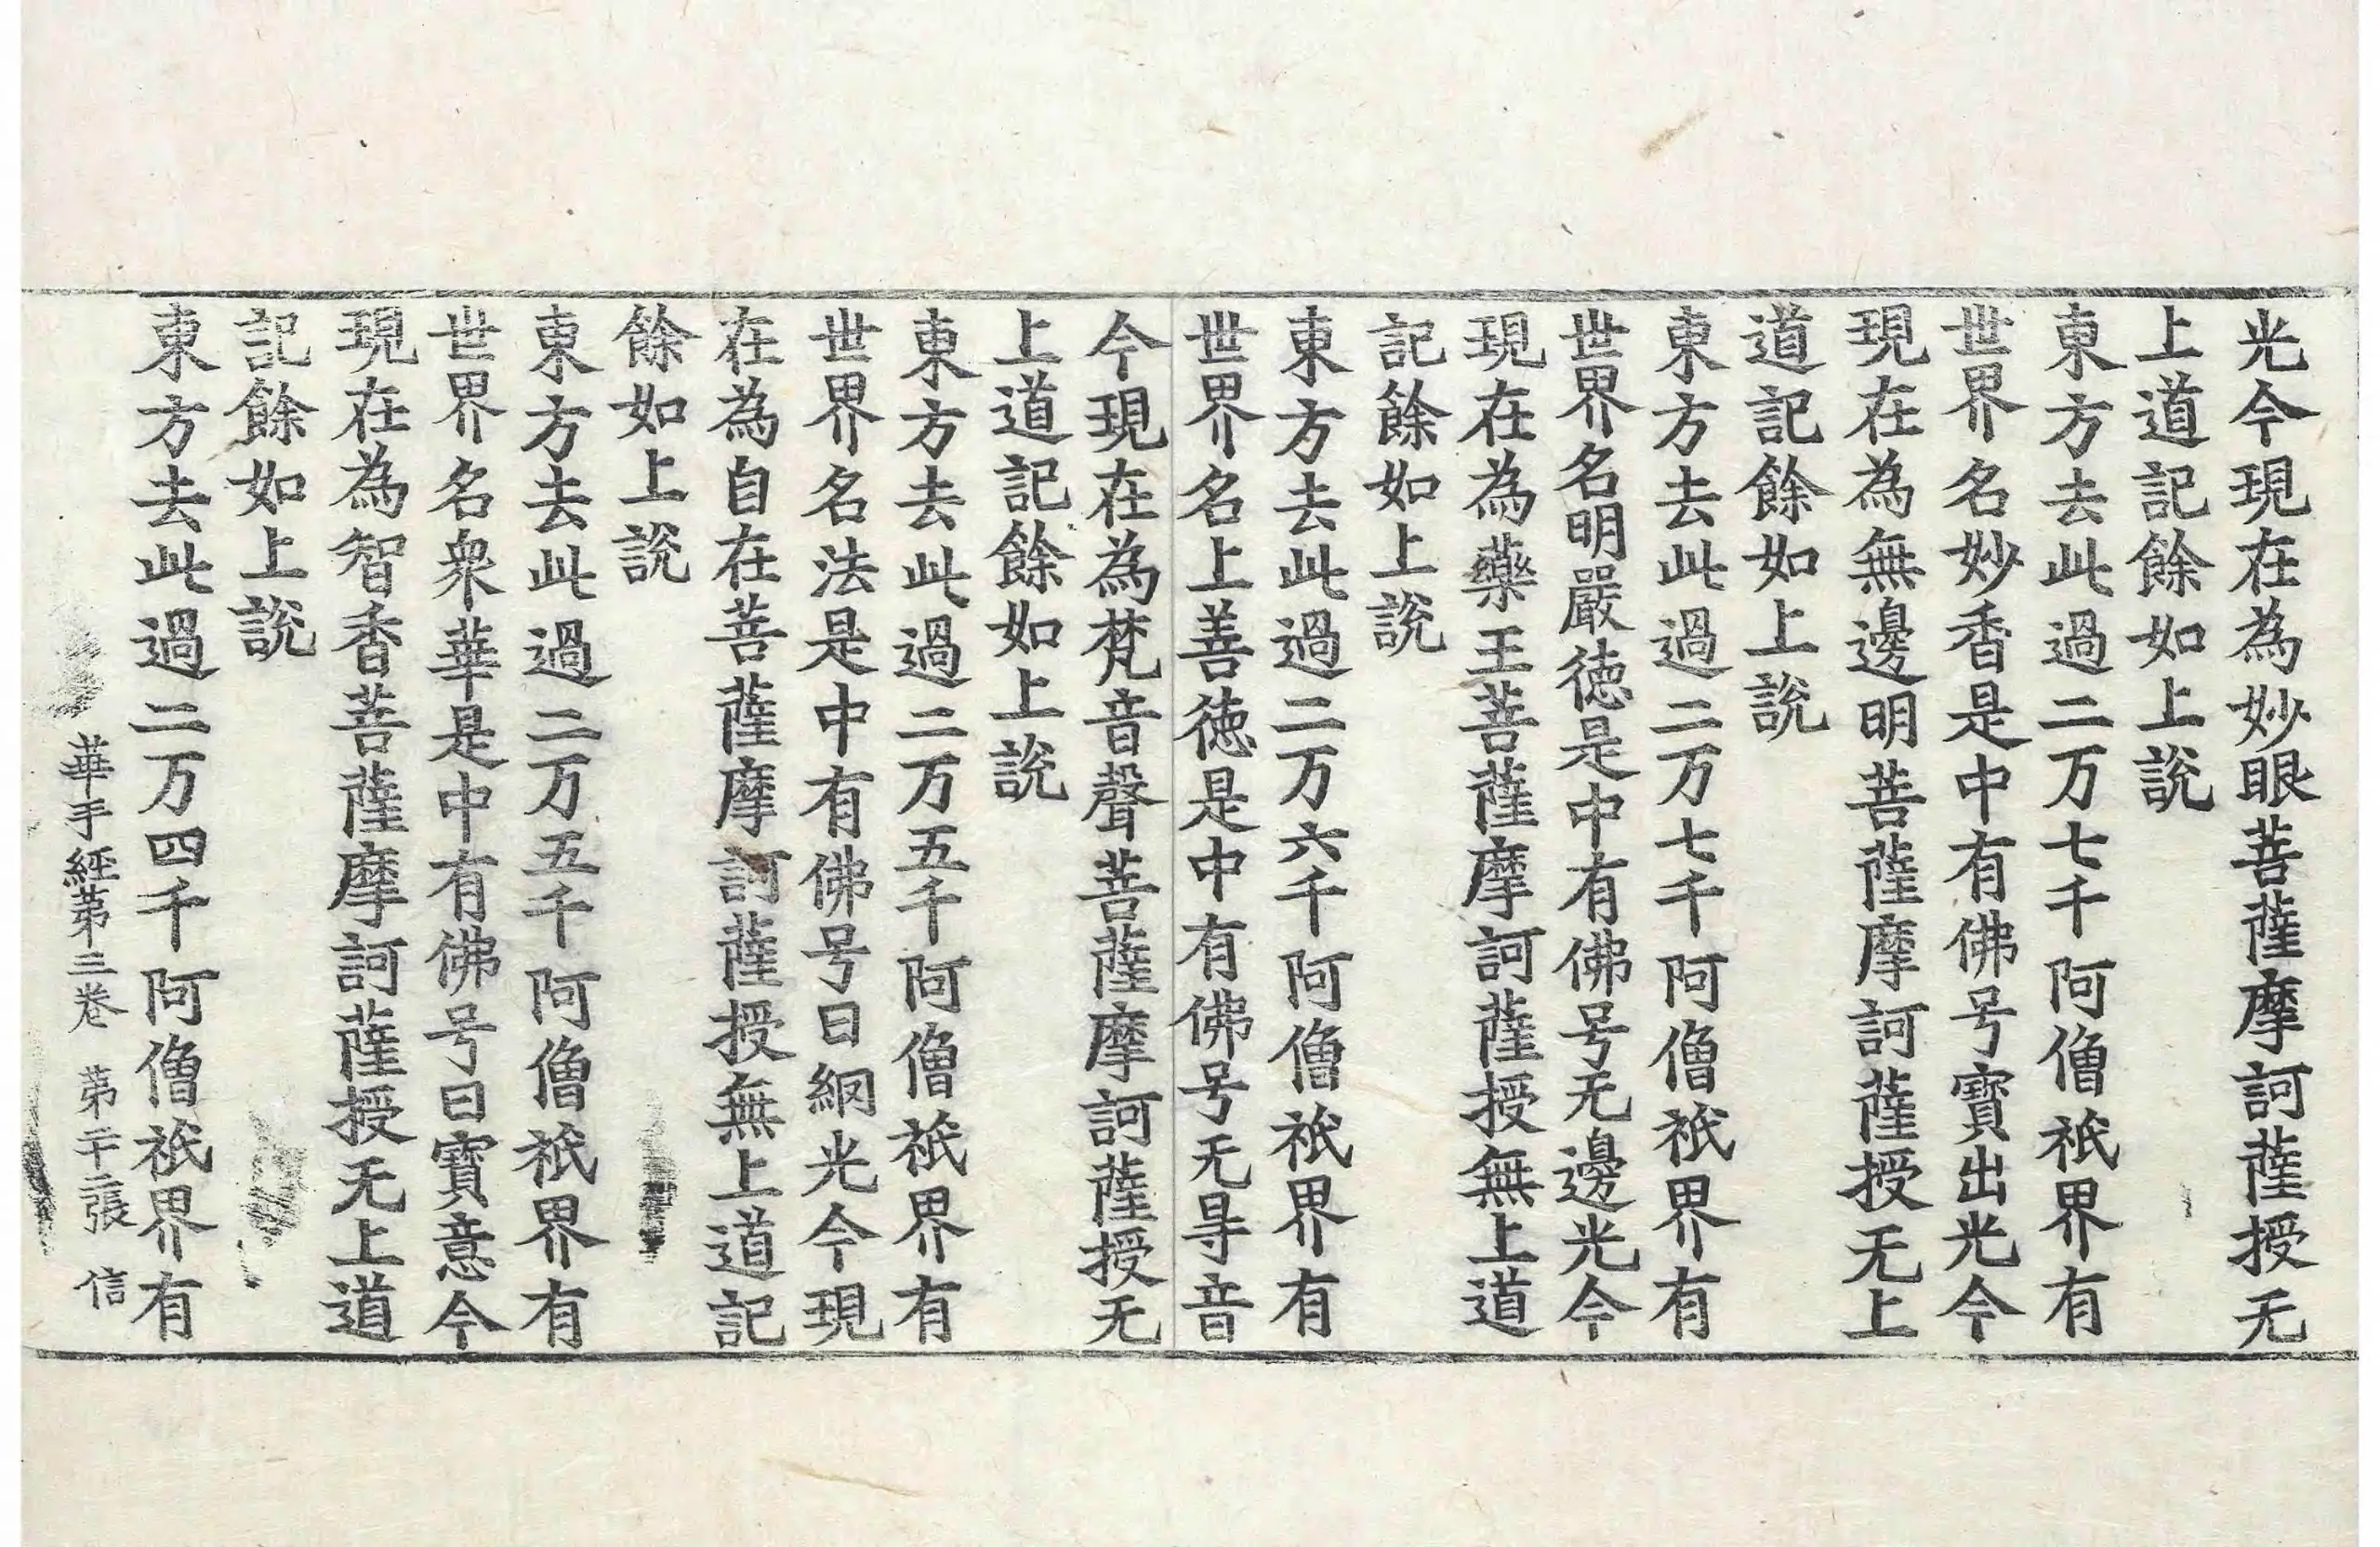 光今現在為妙眼菩薩摩訶薩授无
上道記餘如上說
東方去此過二万七千阿僧祇界有
世界名妙香是中有佛号寶出光今
現在為無邊明菩薩摩訶薩授无上
道記餘如上說
東方去此過二万七千阿僧祇界有
世界名明嚴德是中有佛号无邊光今
現在為藥王菩薩摩訶薩授無上道
記餘如上說
東方去此過二万六千阿僧祇界有
世界名上善德是中有佛号无㝵音
今現在為梵音聲菩薩摩訶薩授无
上道記餘如上說
東方去此過二万五千阿僧祇界有
世界名法是中有佛号曰網光今現
在為自在菩薩摩訶薩授無上道記
餘如上說
東方去此過二万五千阿僧祇界有
世界名衆華是中有佛号曰寶意今
現在為智香菩薩摩訶薩授无上道
記餘如上說
東方去此過二万四千阿僧祇界有
華手經第三卷 第二十二張 信